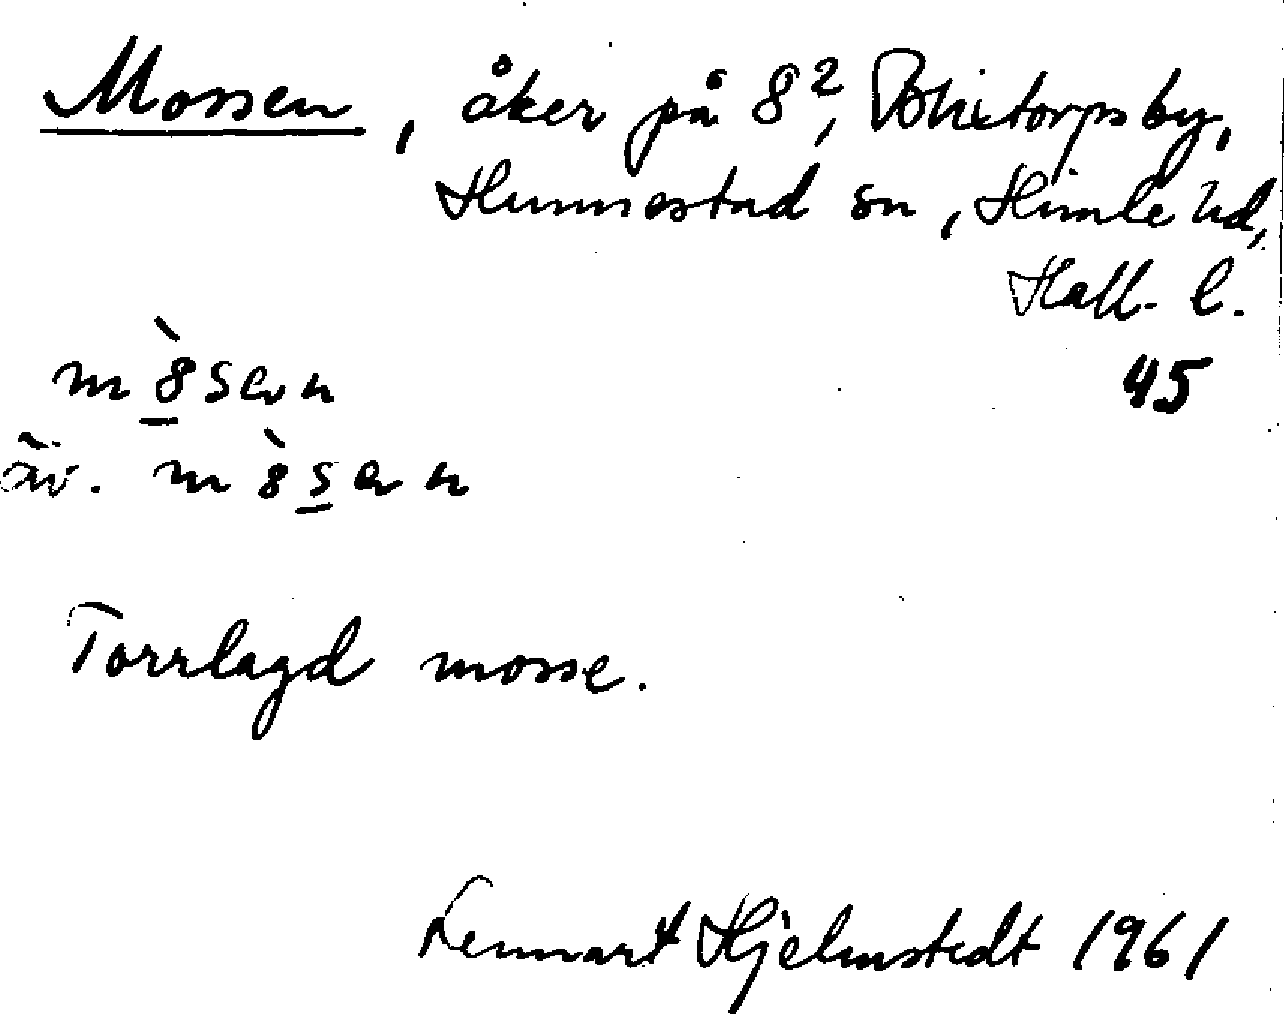 Mossen, åker på 8², Bohxtorps by,
Hunnestad sn, Himle hd,
Hall. l.
45
m ò̱ s ə n
äv. m ò s̱ ə n
Torrlagd mosse.
Lennart Hjelmstedt 1961